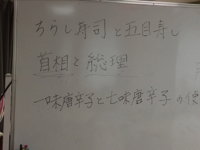 ちらし寿司と五目寿し
首相と総理
一味唐辛子と七味唐辛子の使